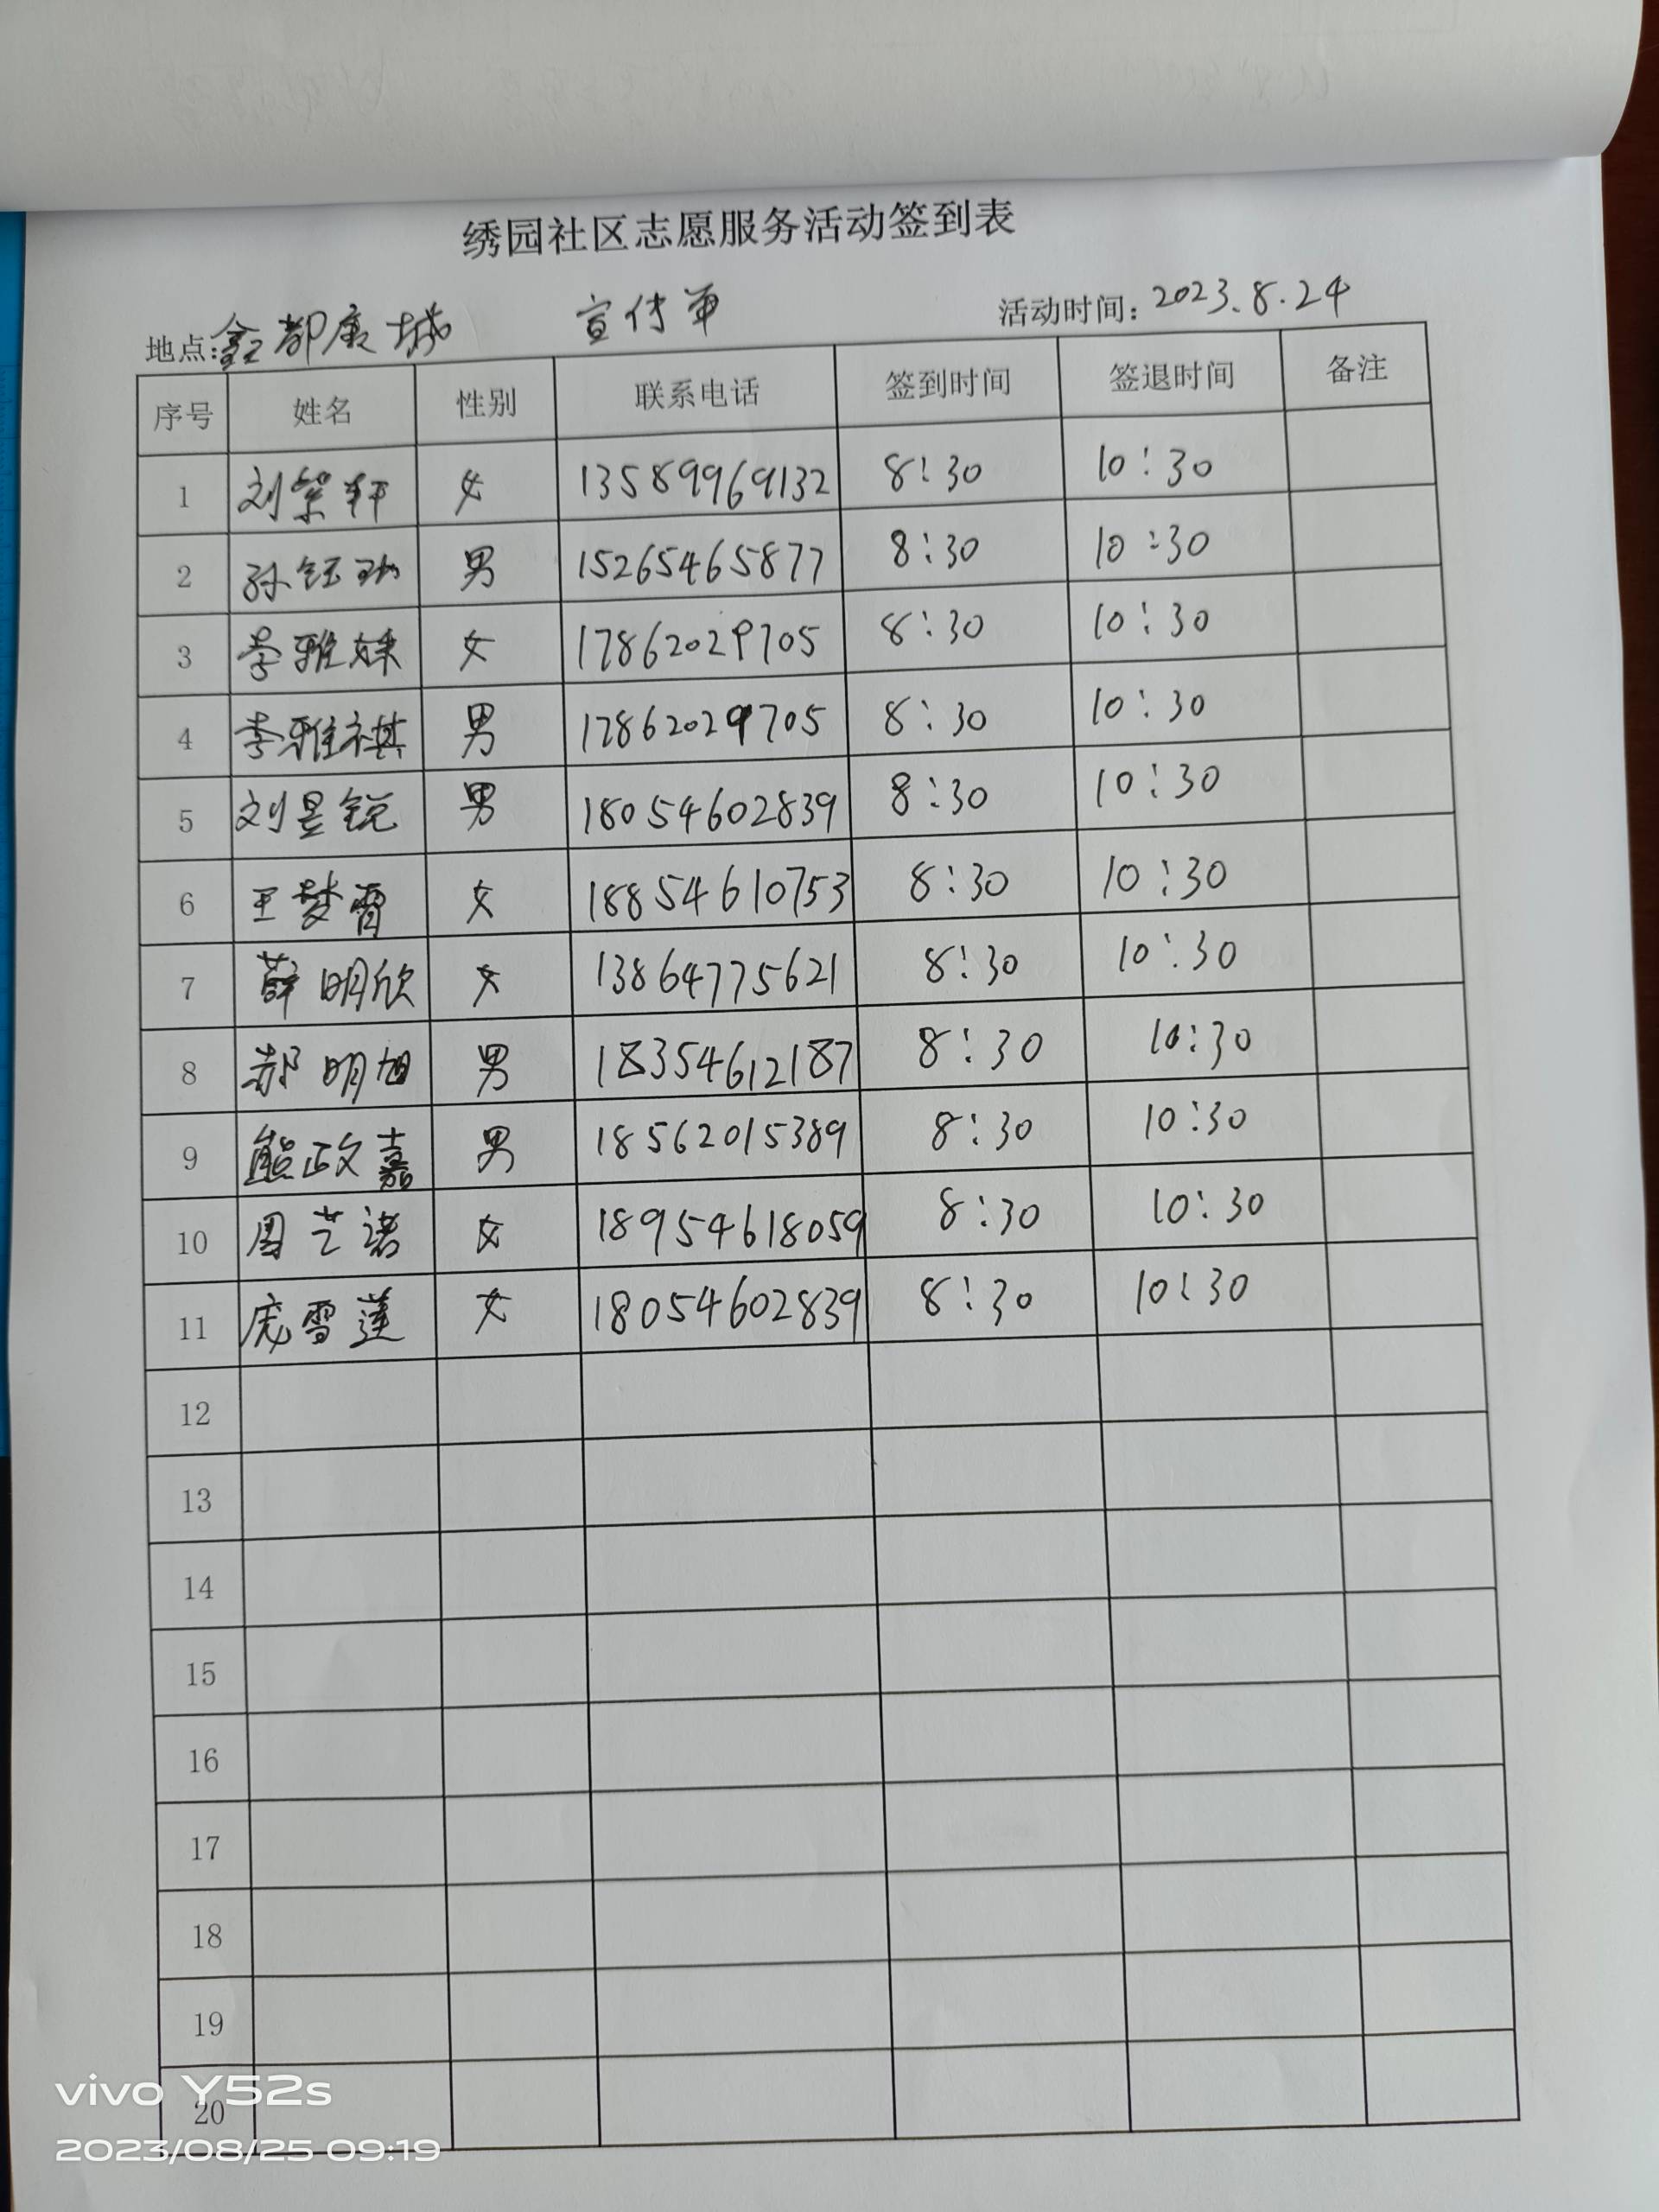 绣园社区志愿服务活动签到表
地点:鑫都康城 宣传单 活动时间: 2023.8.24
序号 姓名 性别 联系电话 签到时间 签退时间 备注
1 刘紫轩 女 13589969132 8:30 10:30
2 孙钰 男 15265465877 8:30 10:30
3 李雅姝 女 17862029705 8:30 10:30
4 李雅祺 男 17862029705 8:30 10:30
5 刘昱锐 男 18054602839 8:30 10:30
6 王梦霄 女 18854610753 8:30 10:30
7 薛明欣 女 13864775621 8:30 10:30
8 郝明旭 男 18354612187 8:30 10:30
9 熊政嘉 男 18562015389 8:30 10:30
10 周艺诺 女 18954618059 8:30 10:30
11 庞雪莲 女 18054602839 8:30 10:30
12
13
14
15
16
17
18
19
20
vivo Y52s
2023/08/25 09:19